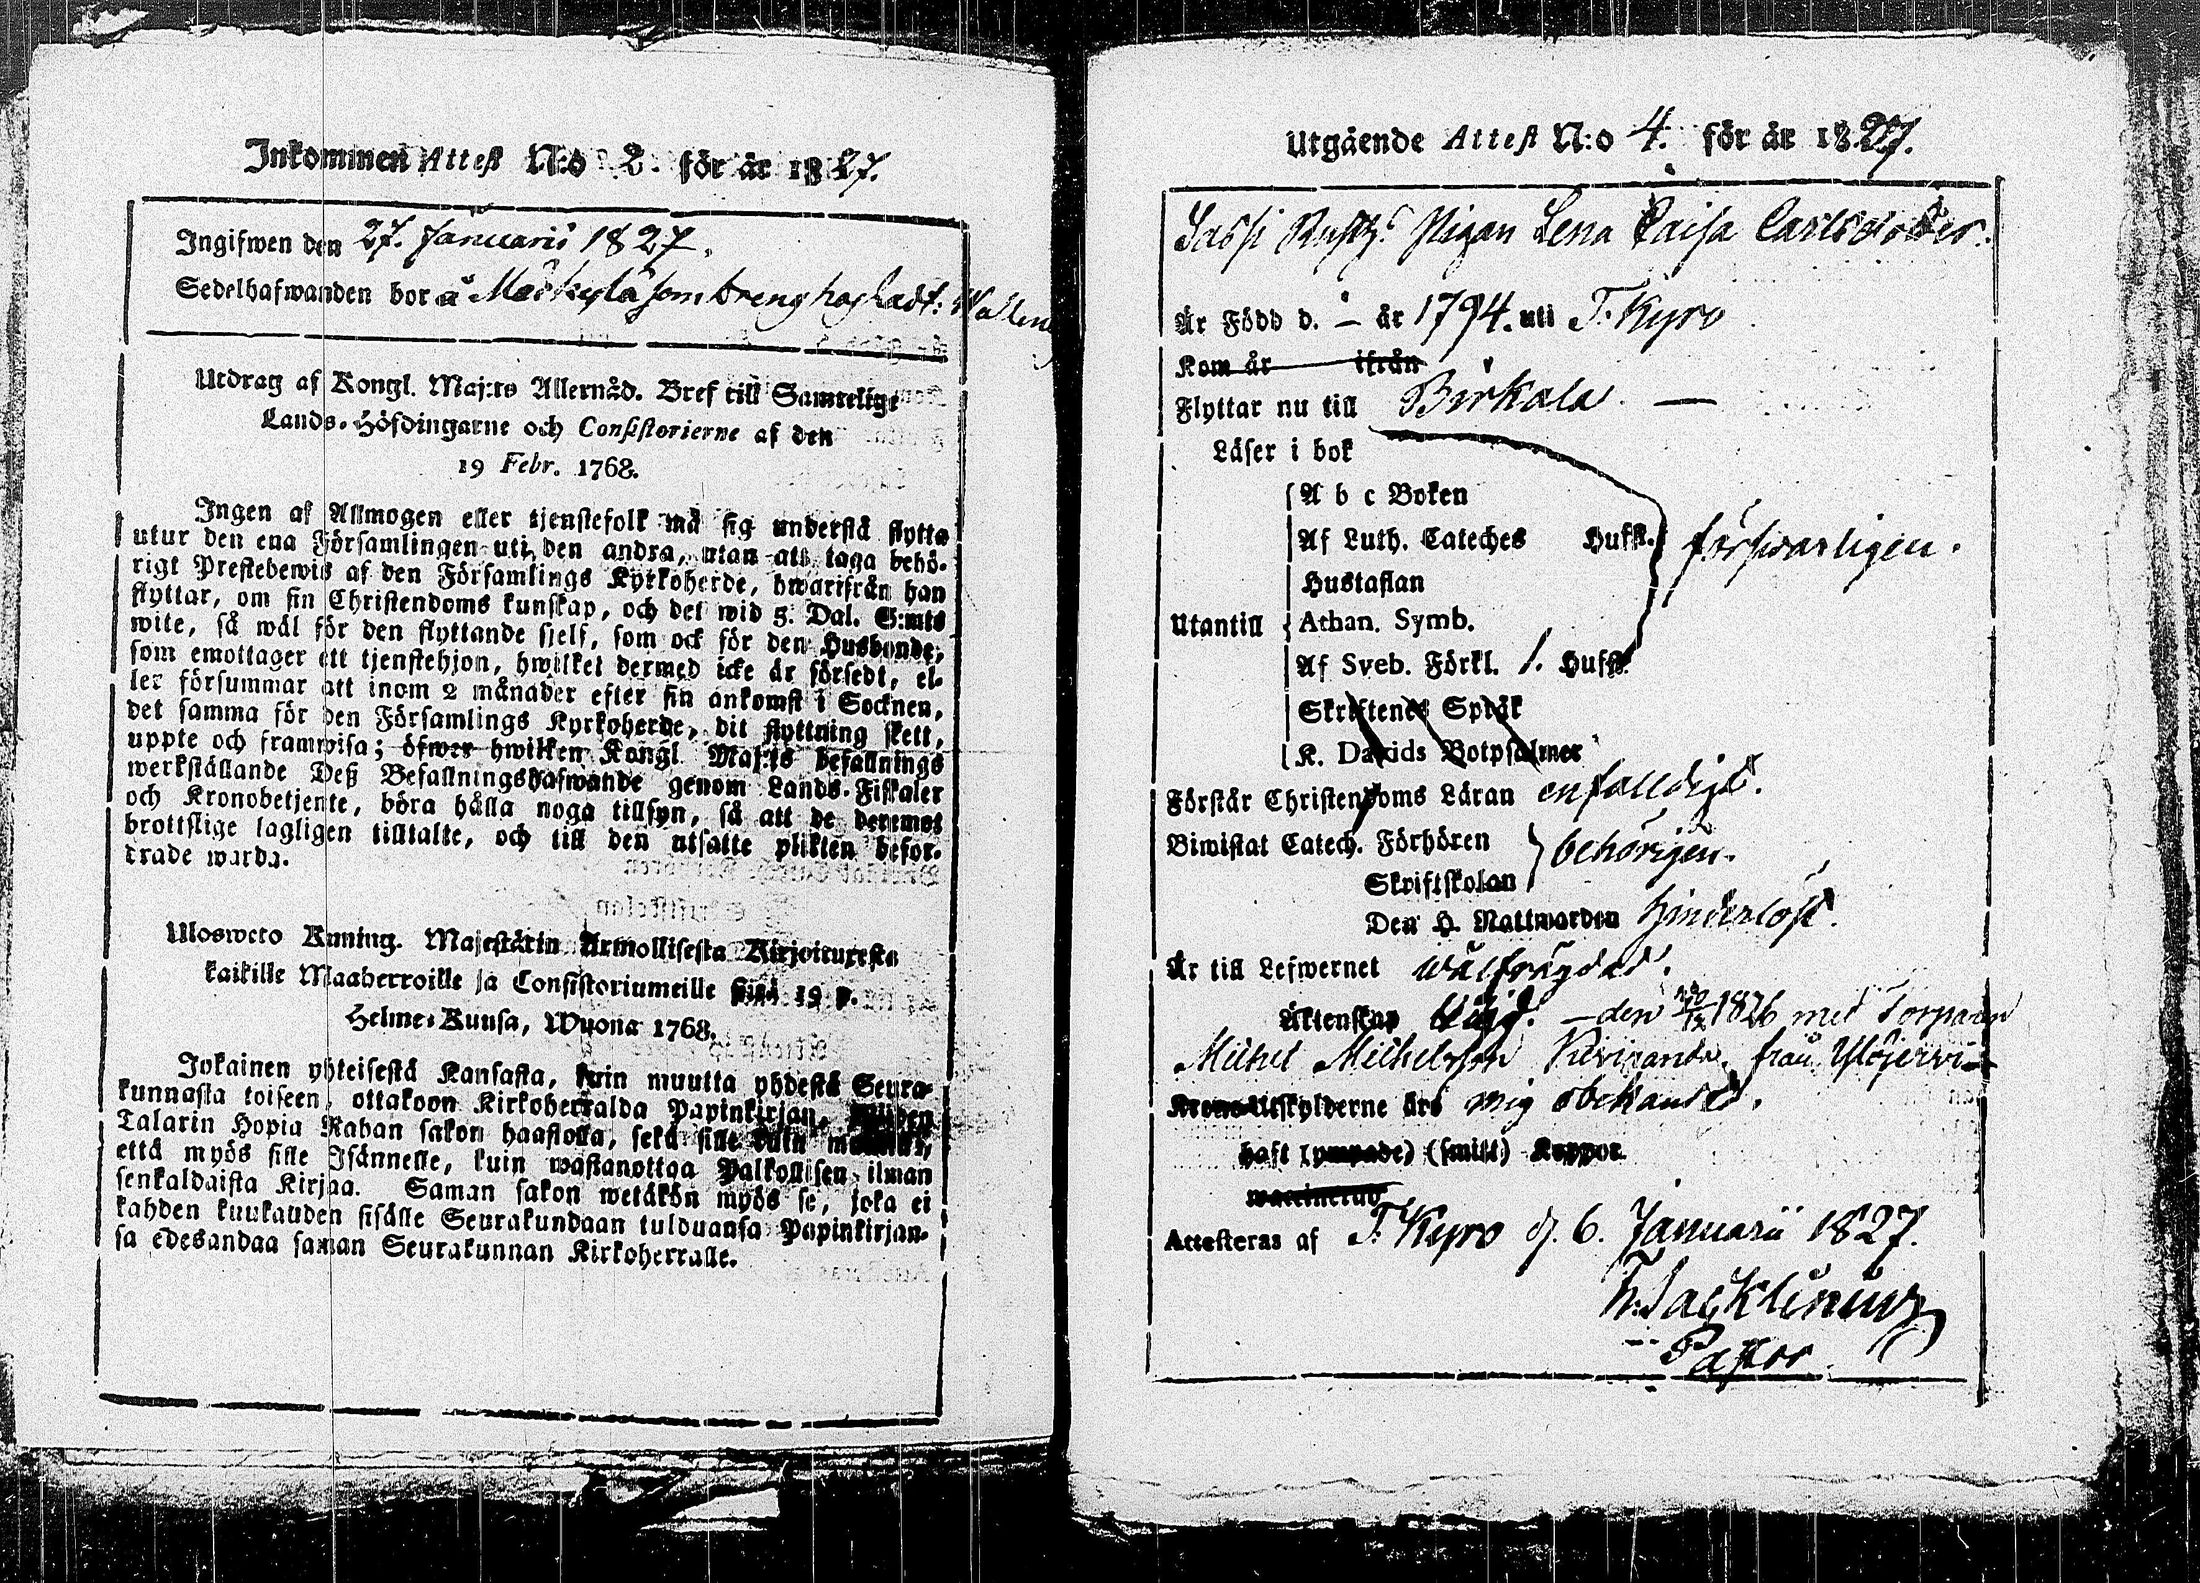 Inkommen Attest N:o 2. för år 1827.
Ingifwen den 27. Januarii 1827.
Sedelhafwanden bor å Mäckylä som dreng hos
Utdrag af Kongl. Maj:ts Allernåd. Bref till Samtelige
Lands-Höfdingarne och Consistorierne af den
19 Febr. 1768.
Ingen af Allmogen eller tjenstefolk må sig understå flytta
utur den ena Församlingen uti den andra, utan att taga behö-
rigt Prestebewis af den Församlings Kyrkoherde, hwarifrån han
flyttar, om sin Christendoms kunskap, och det wid 5. Dal. S:mts
wite, så wäl för den flyttande sjelf, som ock för den Husbonde,
som emottager ett tjenstehjon, hwilket dermed icke är försedt, el-
ler försummar att inom 2 månader efter sin ankomst i Socknen,
det samma för den Församlings Kyrkoherde, dit flyttning skett,
uppte och framwisa; öfwer hwilken Kongl. Maj:ts befallnings
werkställande Deß Befallningshafwande genom Lands-Fiskaler
och Kronobetjente, böra hålla noga tillsyn, så att de deremot
brottslige lagligen tilltalte, och till den utsatte plikten befor-
drade warda.
Uloswето Kuning. Majestätin Armollisesta Kirjoituxesta
kaikille Maaherroille ja Consistoriumeille siitä 19 p.
Helme-Kuusa, Wuona 1768.
Jokainen yhteisestä Kansasta, kuin muutta yhdestä Seura-
kunnasta toiseen, ottakoon Kirkoherralda Papinkirjan,
Talarin Hopia Rahan sakon haastolla, sekä sille kuin
että myös sille Isännelle, kuin wastanottaa Palkollisen ilman
senkaldaista Kirjaa. Saman sakon wetäkön myös se, joka ei
kahden kuukauden sisälle Seurakundaan tulduansa Papinkirjan-
sa edesandaa saman Seurakunnan Kirkoherralle.
Utgående Attest N:o 4. för år 1827.
Sassi Pigan Lena Caisa Carlsdotter.
Är Född d. — år 1794. uti T. Kyro
Kom år ifrån
Flyttar nu till Birkala. —
Läser i bok
A b c Boken
Af Luth. Cateches Hufst.
försvarligen.
Hustaflan
Utantill Athan. Symb.
Af Sveb. Förkl. 1. Hufst.
Skriftenes Språk
K. Davids Botpsalmer
Förstår Christendoms Läran enfalldigt.
Biwistat Catech. Förhören
behörigen.
Skriftskolan
Den H. Nattwarden hinderlöst.
Är till Lefwernet wälfrägdad.
Äktenskap — den 1826 med Torparen
Michel Michelsson från Ylöjerwi
Krono-Utskylderne äro mig obekandt.
haft (ympade) (smitt) Koppor.
waccinerad
Attesteras af T. Kyro d. 6. Januarii 1827.
Pastor